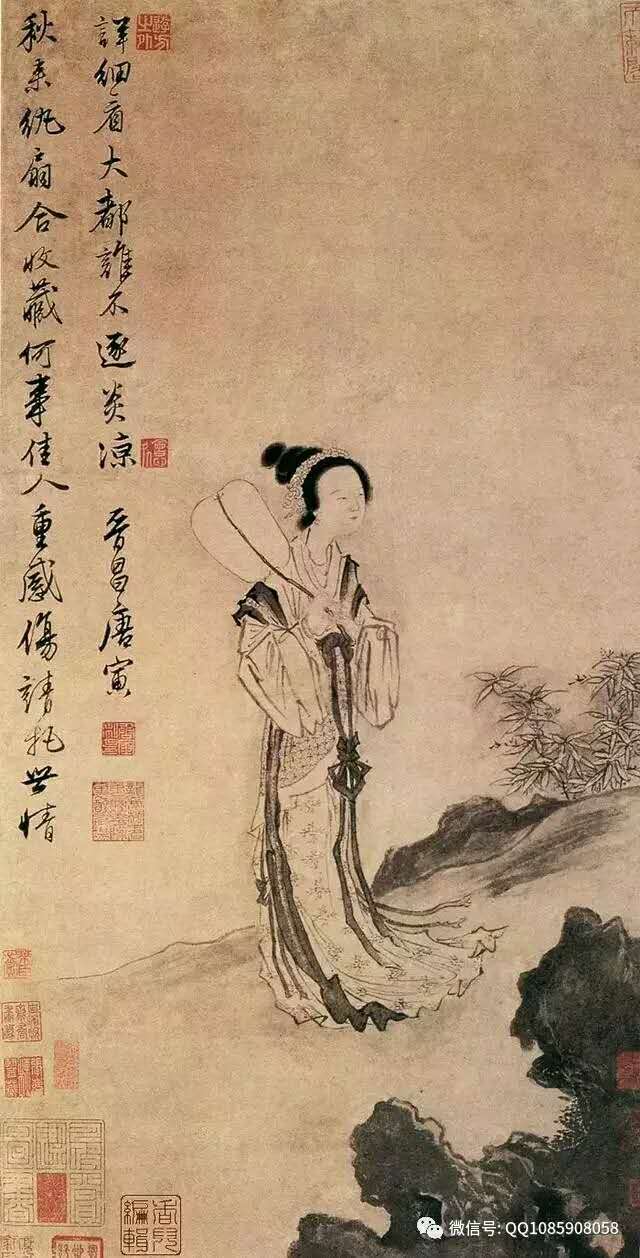 秋来紈扇合收藏何事佳人重感傷請把世情
詳細看大都誰不逐炎凉 晉昌唐寅
微信号: QQ1085908058